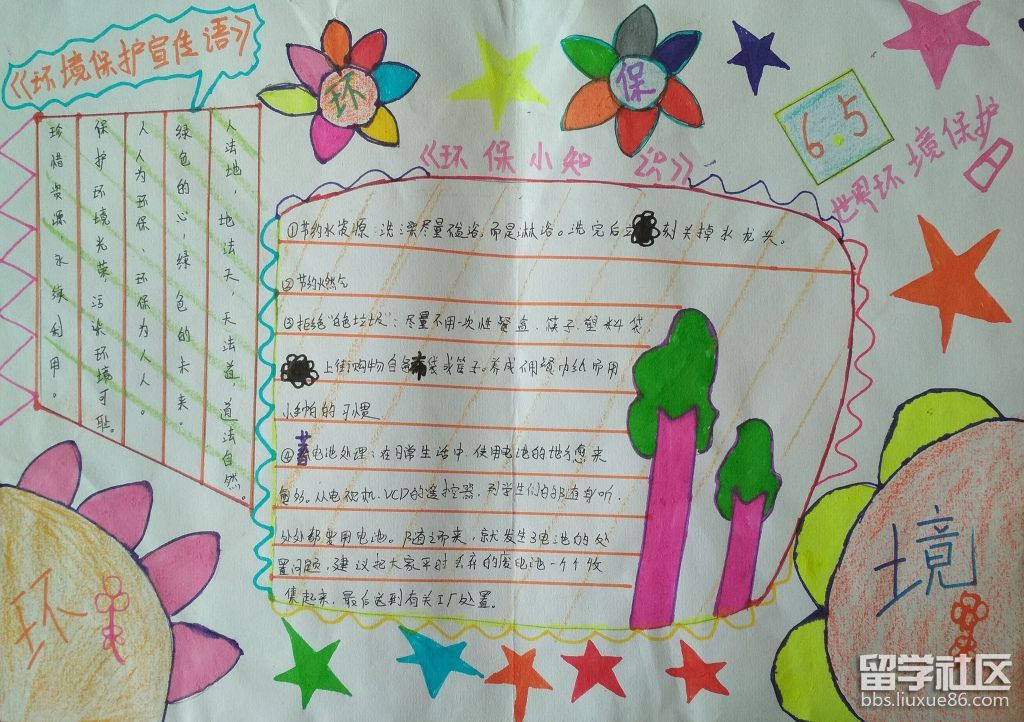 《环境保护宣传语》
环
保
6.5
世界环境保护日
人法地，地法天，天法道，道法自然。
绿色的心，绿色的未来。
人人为环保，环保为人人。
保护环境光荣，污染环境可耻。
珍惜资源，永续利用。
《环保小知识》
①节约水资源：洗澡尽量不盆浴，而是淋浴。洗完后立刻关掉水龙头。
②节约燃气
③拒绝"白色垃圾"：尽量不用一次性餐盒、筷子、塑料袋，
上街购物自备布袋或篮子。养成不用餐巾纸而用
小手帕的习惯
电池处理：在日常生活中，使用电池的地方愈来
愈多。从电视机、VCD的遥控器，到学生们的随身听，
处处都要用电池。随之而来，就发生了电池的处
置问题，建议把大家平时丢弃的废电池一个个收
集起来，最后送到有关工厂处置。
环
境
留学社区
bbs.liuxue86.com